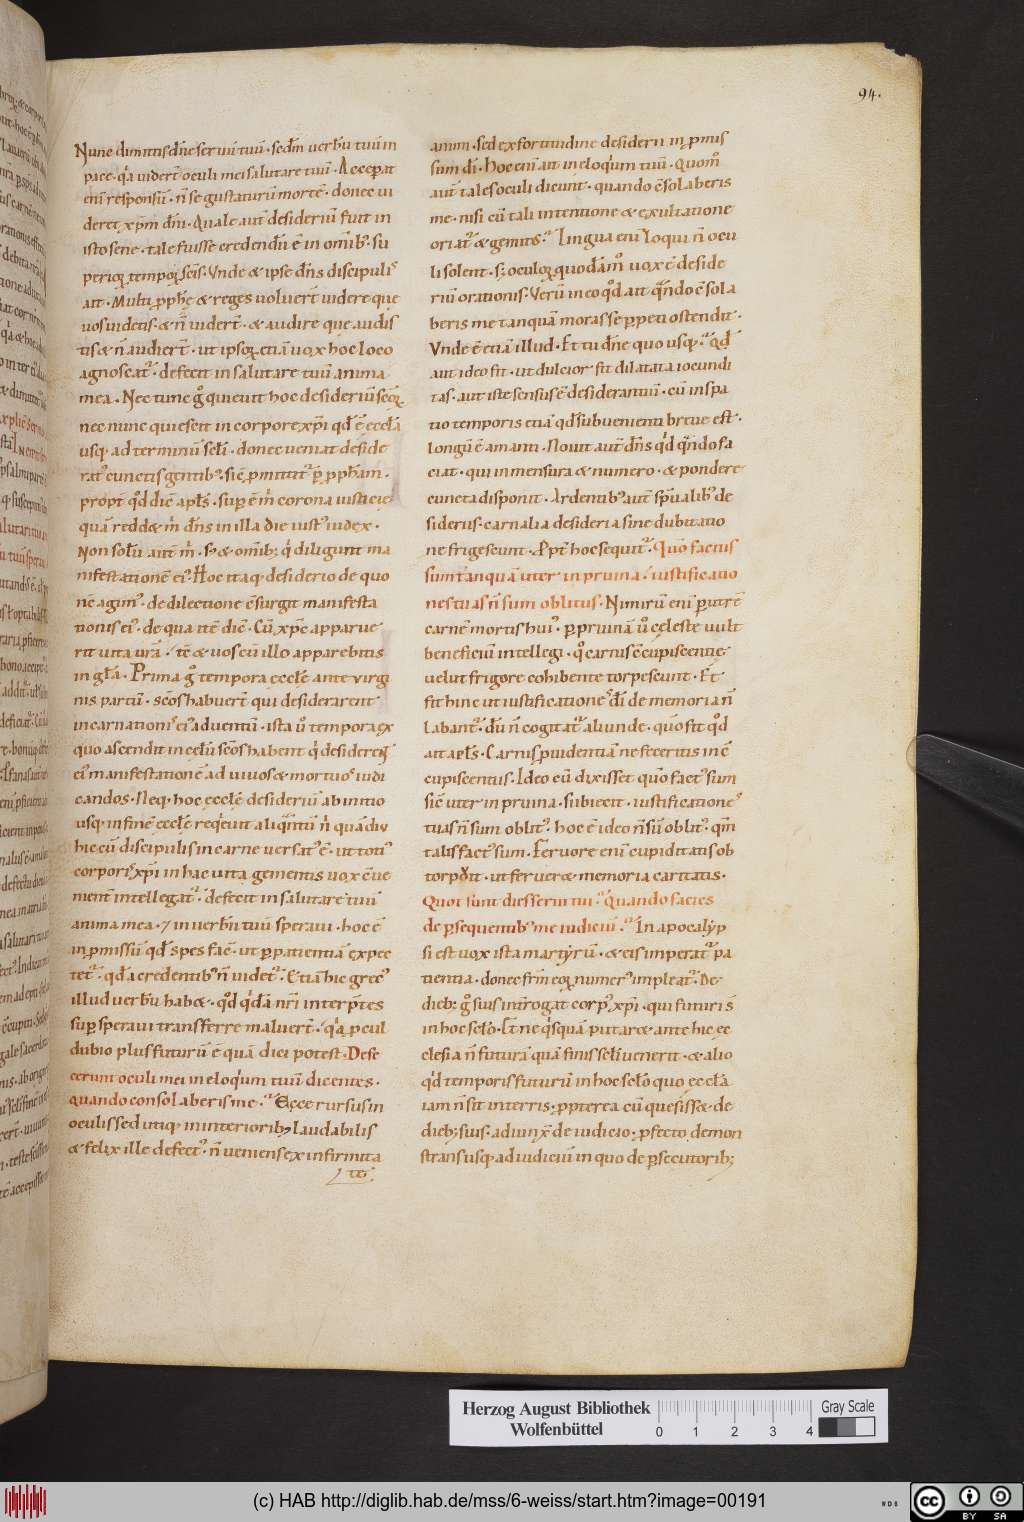 94.
Nunc dimittis dn̄e seruū tuū · scd̄m uerbū tuū in
pace · q̊a uider̄t oculi mei salutare tuū · Acceperat
eni responsū · n̄ se gustaturū mortē · donec ui
deret xp̄m dn̄i · Quale aut̄ desideriū fuit in
isto sene · tale fuisse credendū ē in omīb; su
perioꝝ tempoꝝ sc̄is · Vnde & ipse dn̄s discipulis
ait · Multi pph̄e & reges uoluer̄t uidere que
uos uidetis · & n̄ uider̄t · & audire que audis
tis & n̄ audier̄t · ut ipsoꝝ etiā uox hoc loco
agnoscat᷑ · defecit in salutare tuū anima
mea · Nec tunc g̊ quieuit hoc desideriū sc̄oꝝ
nec nunc quiescit in corpore xp̄i qd̄ ē eccl̄a
usq; ad terminū sc̄li · donec ueniat deside
rat᷒ cunctis gentib; · sic̄ p̄mittit᷑ p̄ pph̄am ·
propt̄ qd̄ dic̄ apl̄s · sup ē m̄ corona iusticie
quā reddet m̄ dn̄s in illa die iust᷒ iudex ·
Non solū aut̄ m̄ · s; & omīb; q̄ diligunt ma
nifestationē ei᷒ · Hoc itaq; desiderio de quo
nc̄ agim᷒ · de dilectione ē surgit manifesta
tionis ei᷒ · de qua itē dic̄ · Cū xp̄c apparue
rit uita ur̄a · tc̄ & uos cū illo apparebitis
in gl̄a · Prima g̊ tempora eccl̄e ante virgi
nis partū · sc̄os habuer̄t qui desiderarent
incarnationis ei᷒ aduentū · ista ů tempora ex
quo ascendit in celū sc̄os habent q̄ desiderent
ei᷒ manifestationē ad uiuos & mortuos iudi
candos · Neq; hoc eccl̄e desideriū ab initio
usq; in finē eccl̄e req̊euit aliq̊ntū n̄ quādiu
hic cū discipulis in carne uersat᷒ ē · ut toti᷒
corporis xp̄i in hac uita gementis uox c̄ue
ment̄ intellegat᷑ · defecit in salutare tuū
anima mea · ⁊ in uerbū tuū speraui · hoc ē
in p̄missū qd̄ spes fac̄ · ut p̱ patientiā expec
tet᷑ · qd̄ a credentib; n̄ uidet᷑ · Etiā hic grec᷒
illud uerbū habet · qd̄ q̊dā nr̄i interp̄tes
sup̱ speraui transferre maluer̄t · q̊a p̱cul
dubio plus futurū ē quā dici potest · Defe
cerunt oculi mei in eloq̊um tuū dicentes ·
quando consolaberis me · Ecce rursus in
oculis sed utiq; in interiorib; laudabilis
& felix ille defect᷒ · n̄ ueniens ex infirmita
te
animi · sed ex fortitudine desiderii in p̄mis
sum di · Hoc eni ait in eloq̊um tuū · Quom̊
aut̄ tales oculi dicunt · quando c̄solaberis
me · nisi cū tali intentione & exultatione
oriat᷑ & gemitus · Lingua eni loqui n̄ ocu
li solent · s; oculoꝝ quodām̊ uox ē deside
riū orationis · Verū in eo qd̄ ait q̊ndo c̄sola
beris me tanquā moras se p̱peti ostendit ·
Vnde ē etiā illud · Et tu dn̄e quo usq; · Qd̄
aut ideo fit · ut dulcior sit dilatata iocundi
tas · aut iste sensus ē desiderantiū · cū in spa
tio temporis etiā qd̄ subuenienti breue est ·
longū ē amanti · Nouit aut̄ dn̄s qd̄ q̊ndo fa
ciat · qui in mensura & numero · & pondere
cuncta disponit · Ardentib; aut̄ sp̄ualib; de
sideriis · carnalia desideria sine dubitatio
ne frigescunt · Ppt̄ hoc sequit᷑ · Quo factus
sum tanquā uter in pruina · iustificatio
nes tuas n̄ sum oblitus · Nimirū eni p̱ utrē
carnē mortis hui᷒ · p̱ pruinā ů celeste uult
beneficiū intellegi · q̊ carnis c̄cupiscentie
uelut frigore cohibente torpescunt · Et
fit hinc ut iustificationes di de memoria n̄
labant᷑ · dū n̄ cogitat᷑ aliunde · quo fit qd̄
ait apl̄s · Carnis p̱uidentiā ne feceritis in c̄
cupiscentiis · Ideo cū dixisset quo fact᷒ sum
sic̄ uter in pruina · subiecit · iustificationes
tuas n̄ sum oblit᷒ · hoc ē ideo n̄ sū oblit᷒ · qm̄
talis fact᷒ sum · Feruore eni cupiditatis ob
torp̱uit · ut feruerat memoria caritatis ·
Quot sunt dies serui tui · Quando facies
de p̱sequentib; me iudiciū · In apocalyp
si est uox ista martyrū · & eis imperat᷑ pa
tientia · donec frm̄ eoꝝ numer᷒ impleat᷑ · De
dieb; g̊ suis int̄rogat corp᷒ xp̄i · qui futuri s̄
in hoc sc̄lo · Et ne q̊squā putaret ante hic ec
clesiā n̄ futurā quā finis sc̄li uenerit · & alio
qd̄ temporis futurū in hoc sc̄lo quo eccl̄a
iam n̄ sit in terris; p̱pterea cū quesisset de
dieb; suis · adiunx̄ de iudicio · p̱fecto demon
strans usq; ad iudiciū in quo de p̱secutorib;
Herzog August Bibliothek
Wolfenbüttel
0 1 2 3 4
Gray Scale
(c) HAB http://diglib.hab.de/mss/6-weiss/start.htm?image=00191
WDB
cc BY SA